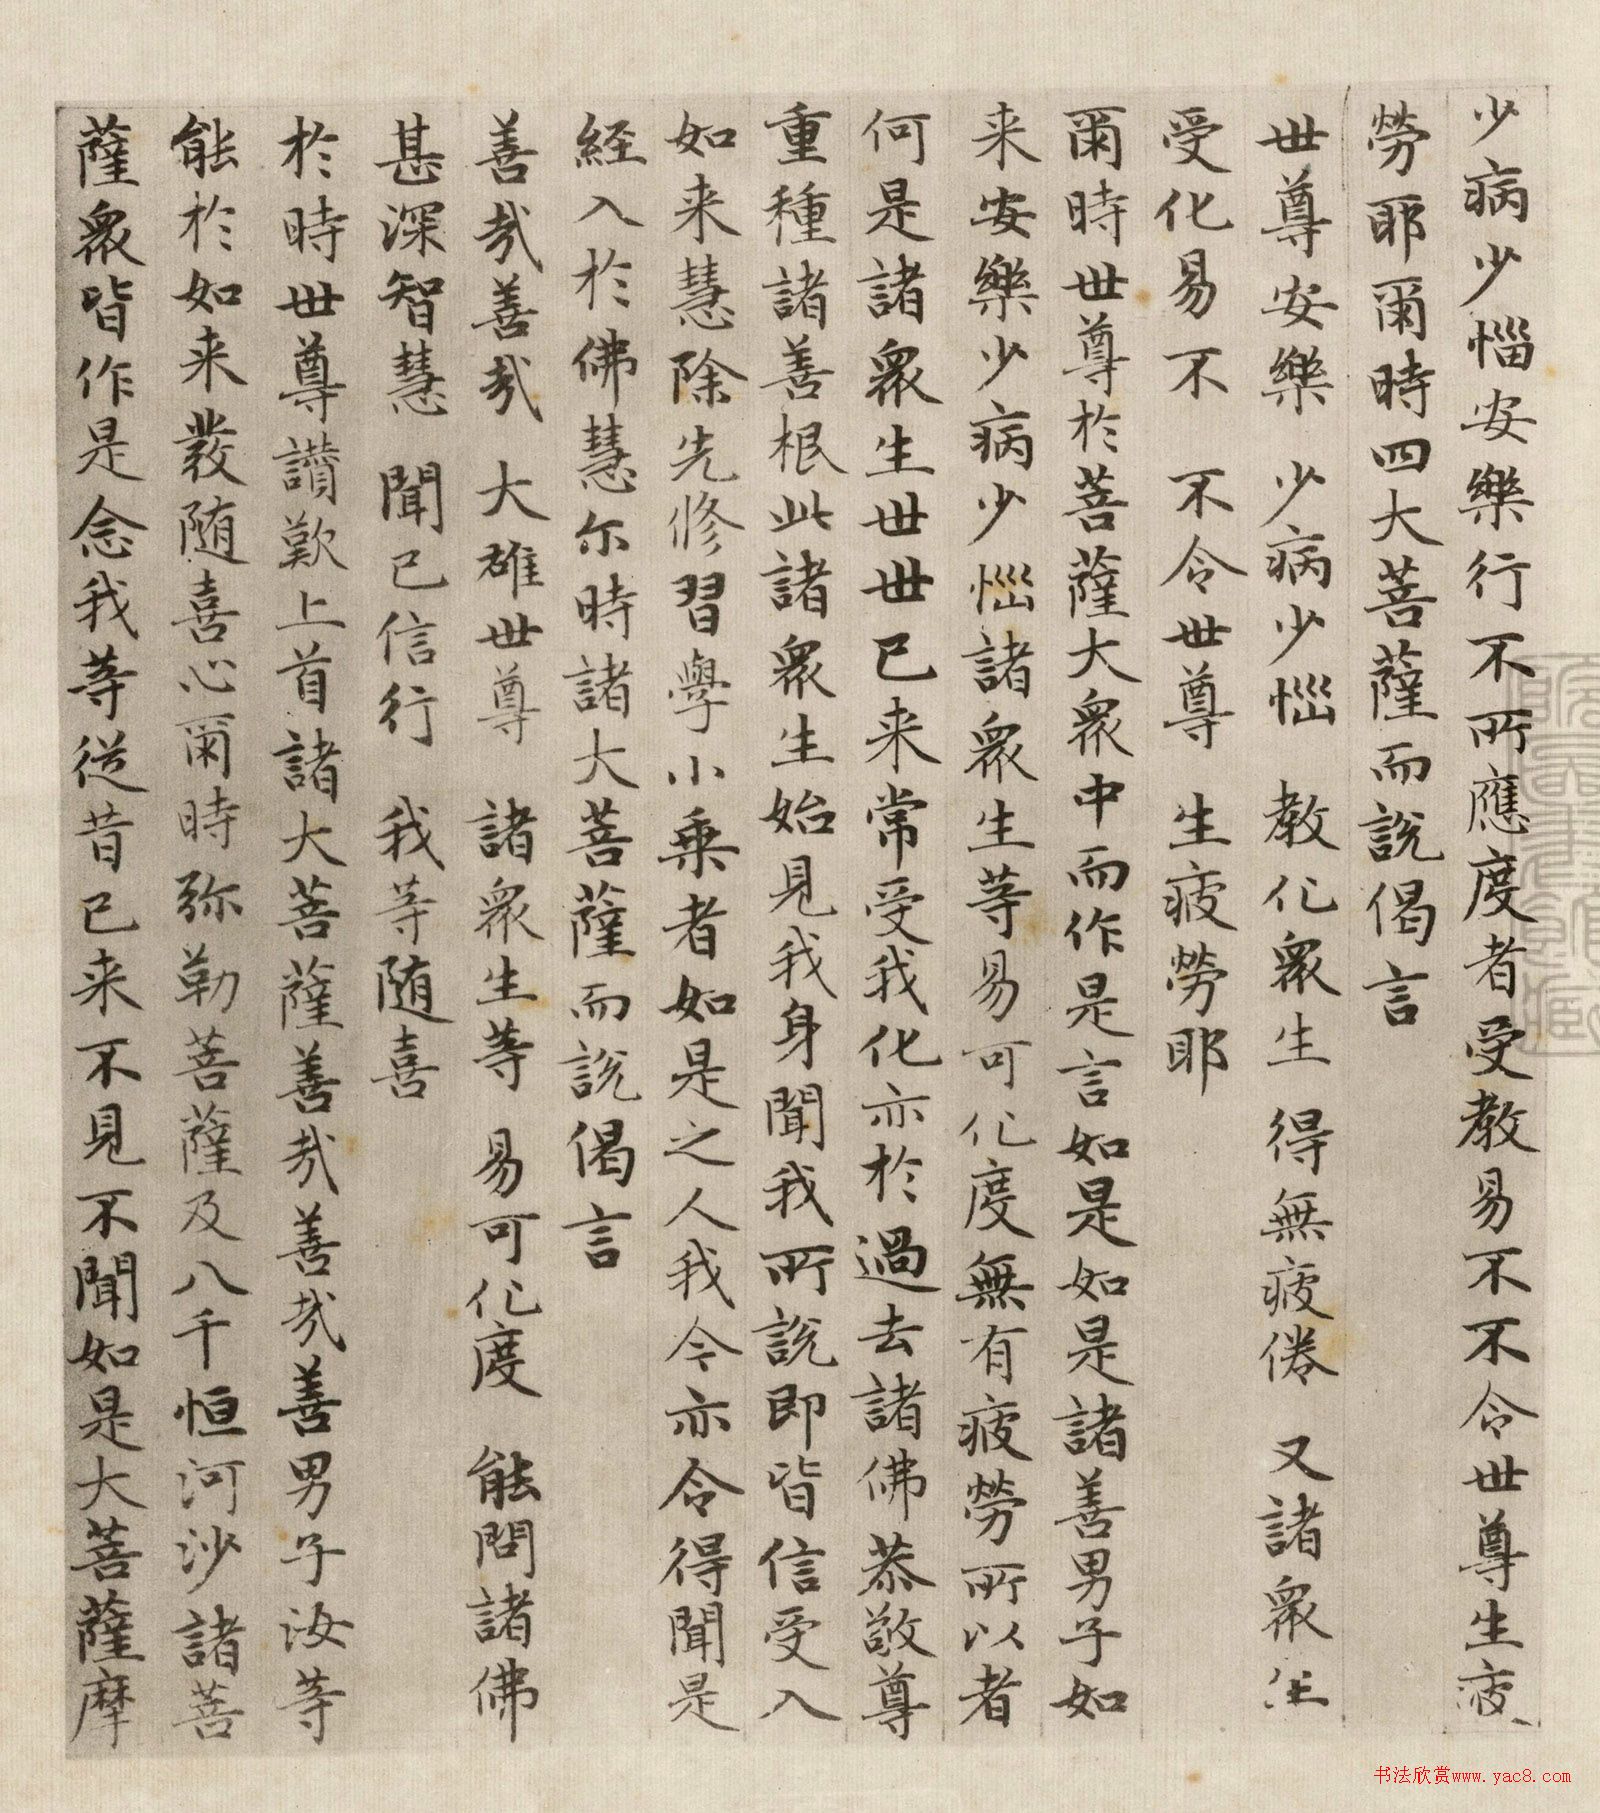 少病少惱安樂行不所應度者受教易不不令世尊生疲
勞耶爾時四大菩薩而說偈言
世尊安樂　少病少惱　教化衆生　得無疲倦　又諸衆生
受化易不　不令世尊　生疲勞耶
爾時世尊於菩薩大衆中而作是言如是如是諸善男子如
来安樂少病少惱諸衆生等易可化度無有疲勞所以者
何是諸衆生世世已来常受我化亦於過去諸佛恭敬尊
重種諸善根此諸衆生始見我身聞我所說即皆信受入
如来慧除先修習學小乗者如是之人我今亦令得聞是
経入於佛慧尔時諸大菩薩而說偈言
善哉善哉　大雄世尊　諸衆生等　易可化度　能問諸佛
甚深智慧　聞已信行　我等随喜
於時世尊讃歎上首諸大菩薩善哉善哉善男子汝等
能於如来發随喜心爾時弥勒菩薩及八千恒河沙諸菩
薩衆皆作是念我等従昔已来不見不聞如是大菩薩摩
书法欣赏www.yac8.com